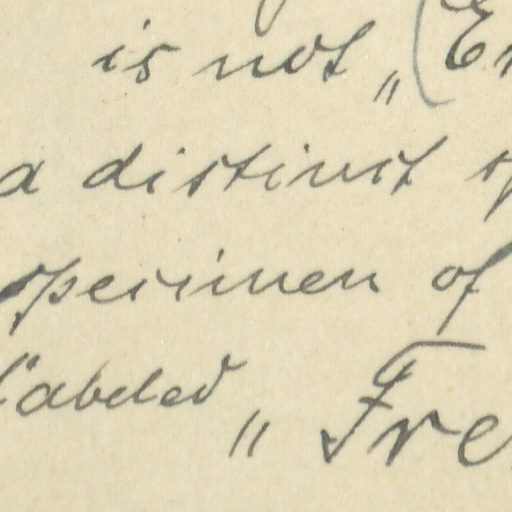 is not „(En
a distinct sp
specimen of
labeled „Fre